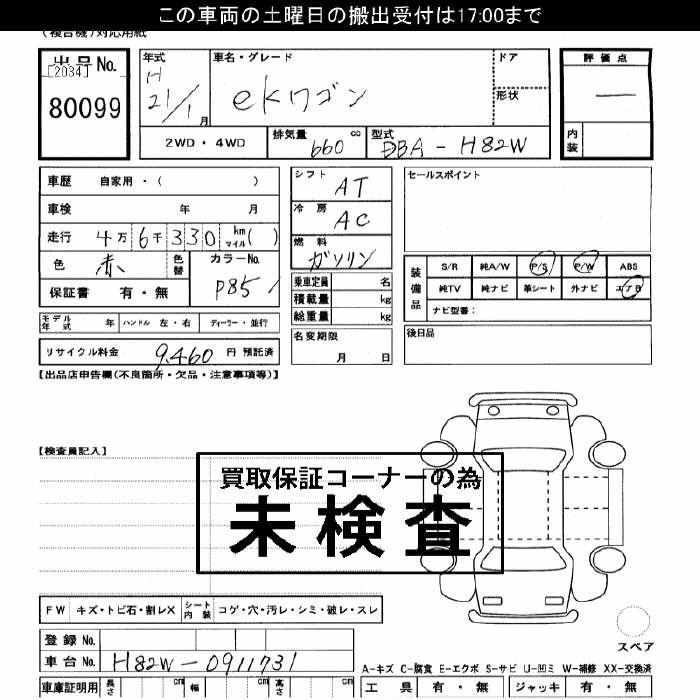 この車両の土曜日の搬出受付は17:00まで
(複合機)対応用紙
出品No.
[2034]
80099
年式
H
21/1月
車名・グレード
ekワゴン
ドア
形状
評価点
—
内装
2WD・4WD
排気量
660 cc
型式
DBA - H82W
車歴 自家用・( )
車検 年 月
走行 4万6千330 km マイル( )
色 赤 色替
カラーNo.
P85
保証書 有・無
シフト AT
冷房 AC
燃料 ガソリン
乗車定員 名
積載量 kg
総重量 kg
セールスポイント
装備品
S/R 純A/W P/S P/W ABS
純TV 純ナビ 革シート 外ナビ エアB
ナビ型番:
モデル年式 年 ハンドル 左・右 ディーラー・並行
名変期限
月 日
後日品
リサイクル料金 9,460 円 預託済
【出品店申告欄(不良箇所・欠品・注意事項等)】
【検査員記入】
買取保証コーナーの為
未検査
FW キズ・トビ石・割レX シート内装 コゲ・穴・汚レ・シミ・破レ・スレ
スペア
登録No.
車台No. H82W-0911731
A-キズ C-腐食 E-エクボ S-サビ U-凹ミ W-補修 XX-交換済
車庫証明用 長さ cm 幅 cm 高さ cm
工具 有・無 ジャッキ 有・無